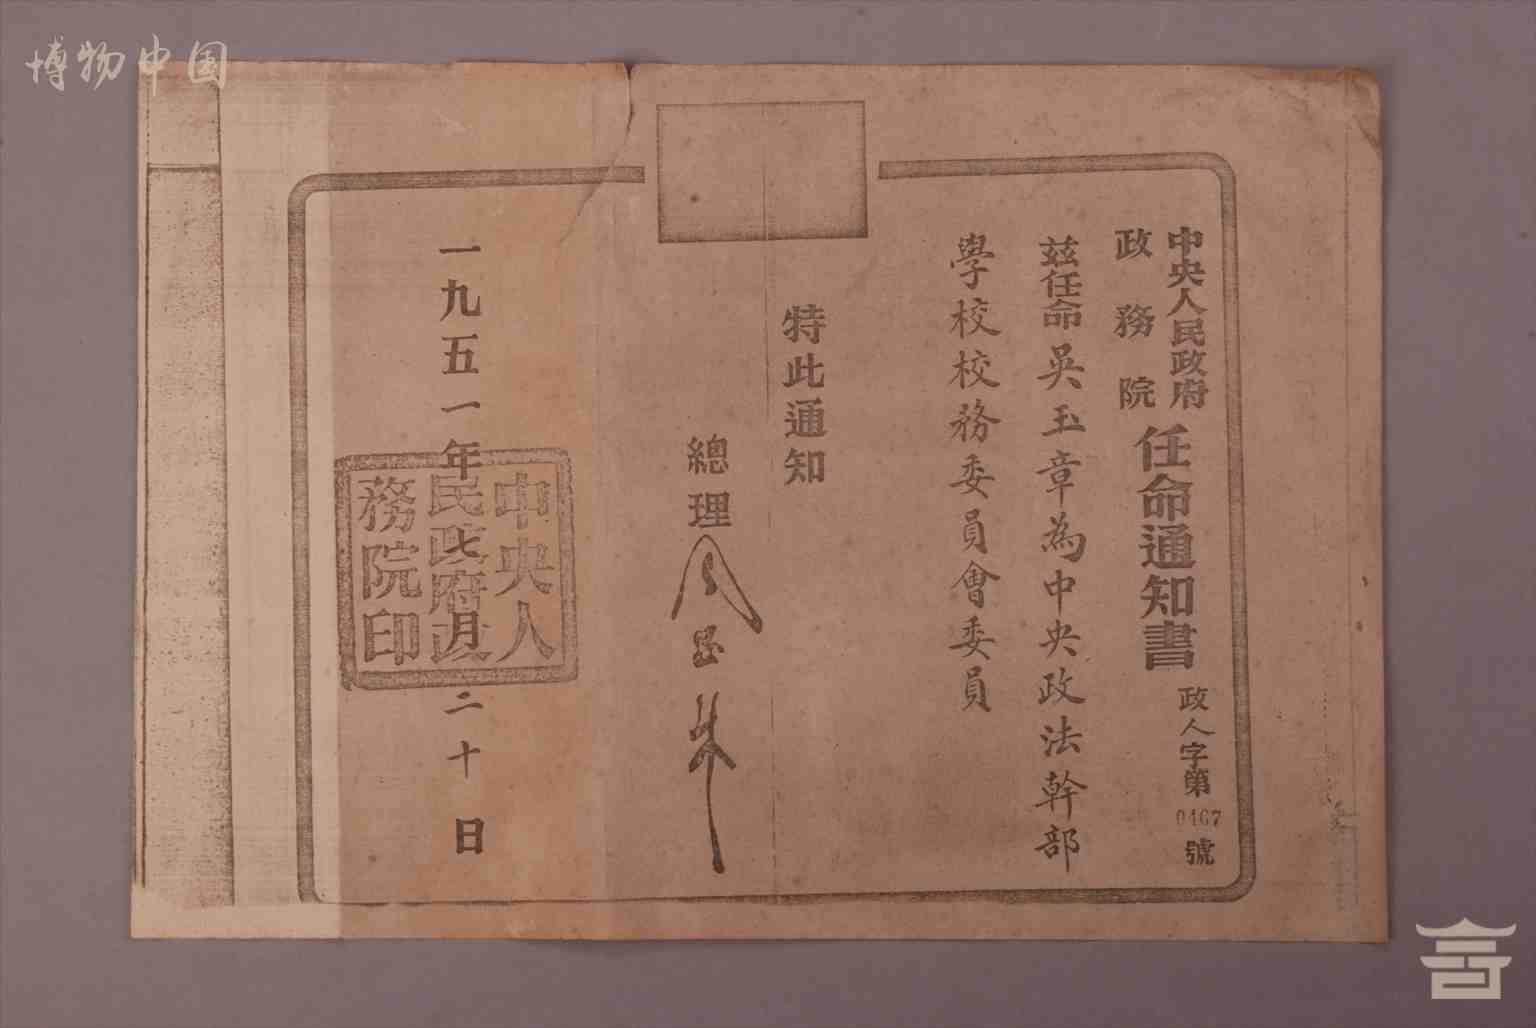 博物中国
中央人民政府
政務院
任命通知書
政人字第0467號
茲任命吳玉章為中央政法幹部
學校校務委員會委員
特此通知
總理周恩來
一九五一年七月二十日
中央人
民政府政
務院印